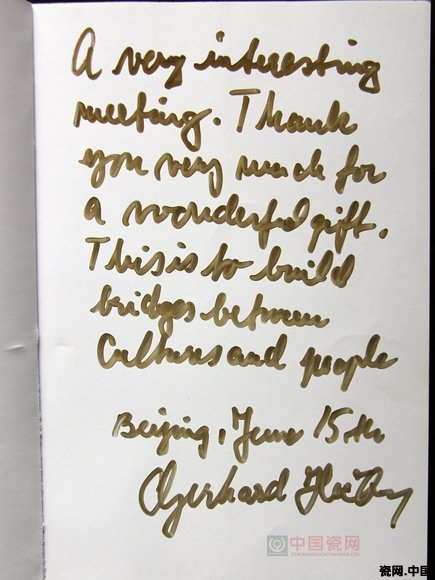 A very interesting
meeting. Thank
you very much for
a wonderful gift.
This is to build
bridges between
Cultures and people
Beijing, June 15 th
Gerhard
中国瓷网
ZHONGGUOCIWANG.CN
瓷网.中国